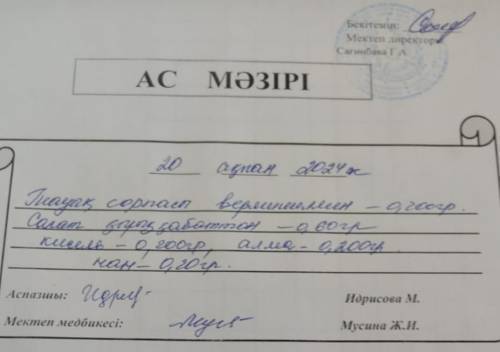 Бекітемін:
Мектеп директоры
Сағинбаева Г.А.
АС МӘЗІРІ
20 ақпан 2024ж
Тауақ сорпасы вермишелмен – 0,200гр.
Салат қырыққабаттан – 0,60гр
кисель – 0,200гр, алма – 0,200гр
нан – 0,20гр.
Аспазшы: Идрисова М.
Мектеп медбикесі: Мусина Ж.И.